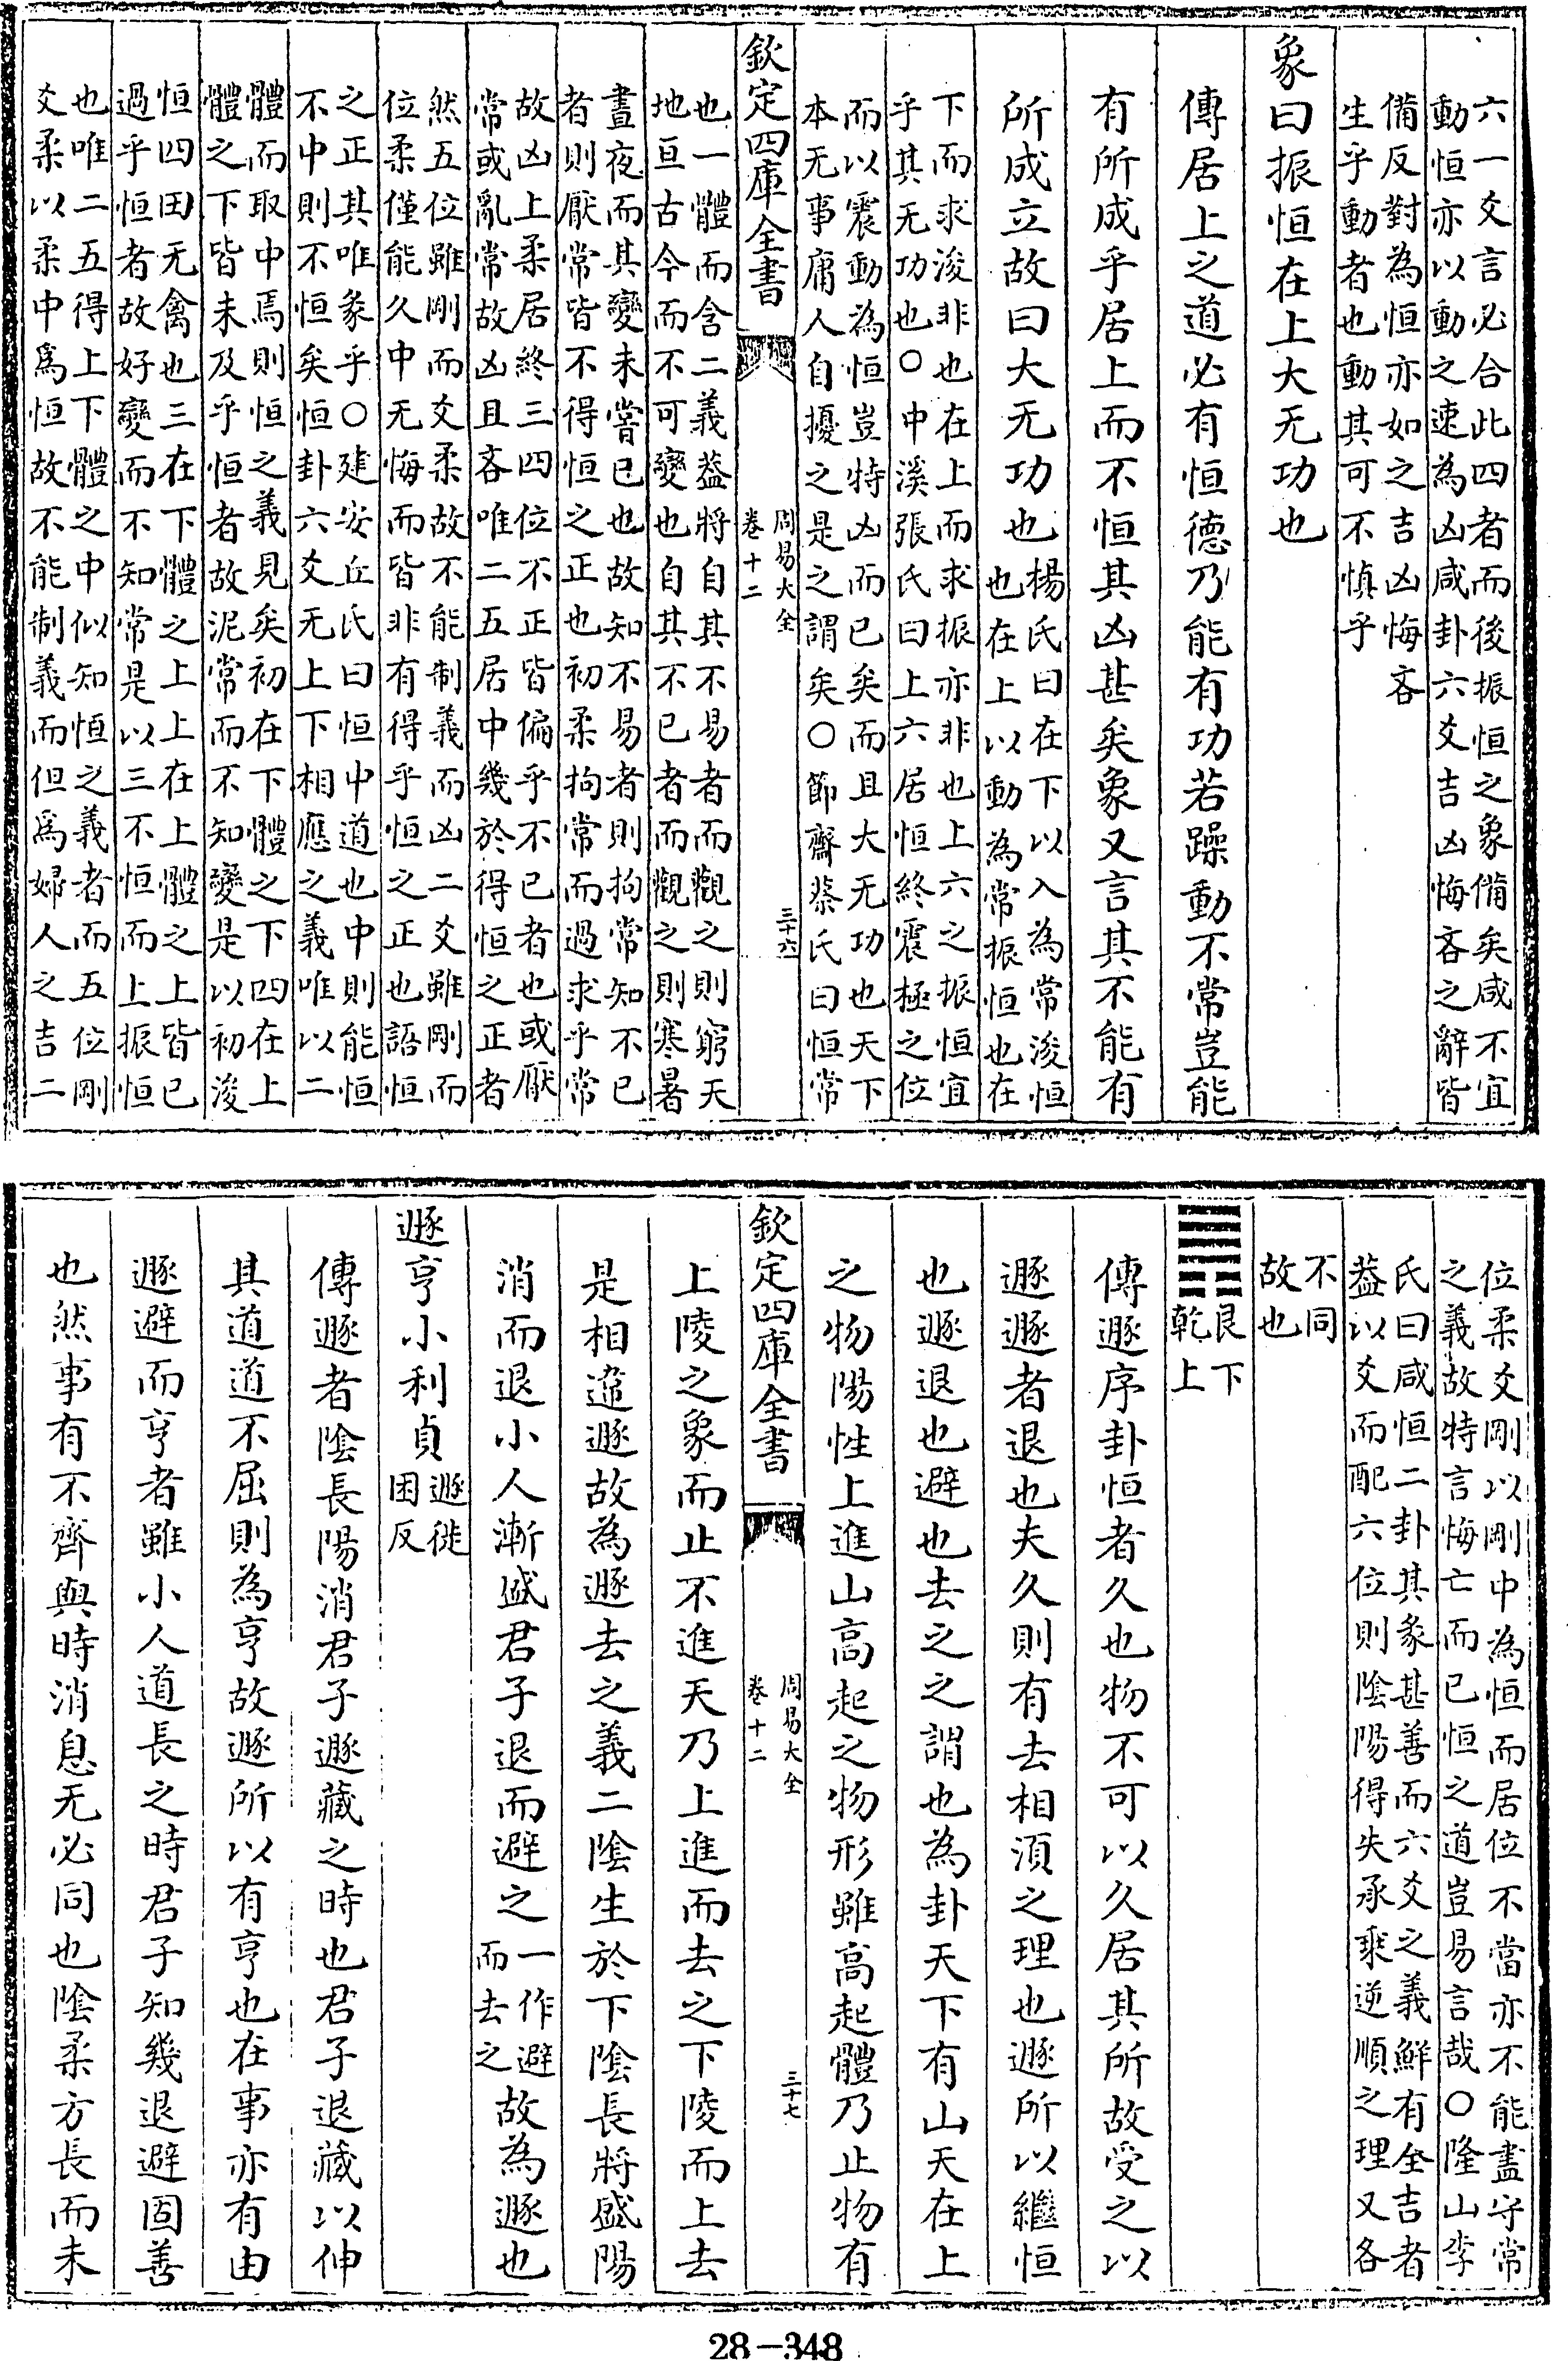 六一爻言必合此四者而後振恒之象備矣咸不宜
動恒亦以動之速為凶咸卦六爻吉凶悔吝之辭皆
備反對為恒亦如之吉凶悔吝
生乎動者也動其可不慎乎
象曰振恒在上大无功也
傳居上之道必有恒德乃能有功若躁動不常豈能
有所成乎居上而不恒其凶甚矣象又言其不能有
所成立故曰大无功也
楊氏曰在下以入為常浚恒
也在上以動為常振恒也在
下而求浚非也在上而求振亦非也上六之振恒宜
乎其无功也○中溪張氏曰上六居恒終震極之位
而以震動為恒豈特凶而已矣而且大无功也天下
本无事庸人自擾之是之謂矣○節齋蔡氏曰恒常
欽定四庫全書
周易大全
卷十二
三十六
也一體而含二義葢將自其不易者而觀之則窮天
地亘古今而不可變也自其不已者而觀之則寒暑
晝夜而其變未嘗已也故知不易者則拘常知不已
者則厭常皆不得恒之正也初柔拘常而過求乎常
故凶上柔居終三四位不正皆偏乎不已者也或厭
常或亂常故凶且吝唯二五居中幾於得恒之正者
然五位雖剛而爻柔故不能制義而凶二爻雖剛而
位柔僅能久中无悔而皆非有得乎恒之正也語恒
之正其唯彖乎○建安丘氏曰恒中道也中則能恒
不中則不恒矣恒卦六爻无上下相應之義唯以二
體而取中焉則恒之義見矣初在下體之下四在上
體之下皆未及乎恒者故泥常而不知變是以初浚
恒四田无禽也三在下體之上上在上體之上皆已
過乎恒者故好變而不知常是以三不恒而上振恒
也唯二五得上下體之中似知恒之義者而五位剛
爻柔以柔中爲恒故不能制義而但爲婦人之吉二
位柔爻剛以剛中為恒而居位不當亦不能盡守常
之義故特言悔亡而已恒之道豈易言哉○隆山李
氏曰咸恒二卦其彖甚善而六爻之義鮮有全吉者
葢以爻而配六位則陰陽得失承乘逆順之理又各
不同
故也
艮下
乾上
傳遯序卦恒者久也物不可以久居其所故受之以
遯遯者退也夫久則有去相須之理也遯所以繼恒
也遯退也避也去之之謂也為卦天下有山天在上
之物陽性上進山高起之物形雖高起體乃止物有
欽定四庫全書
周易大全
卷十二
三十七
上陵之象而止不進天乃上進而去之下陵而上去
是相違遯故為遯去之義二陰生於下陰長將盛陽
消而退小人漸盛君子退而避之
一作避
而去之
故為遯也
遯亨小利貞
遯徙
困反
傳遯者陰長陽消君子遯藏之時也君子退藏以伸
其道道不屈則為亨故遯所以有亨也在事亦有由
遯避而亨者雖小人道長之時君子知幾退避固善
也然事有不齊與時消息无必同也陰柔方長而未
28-348